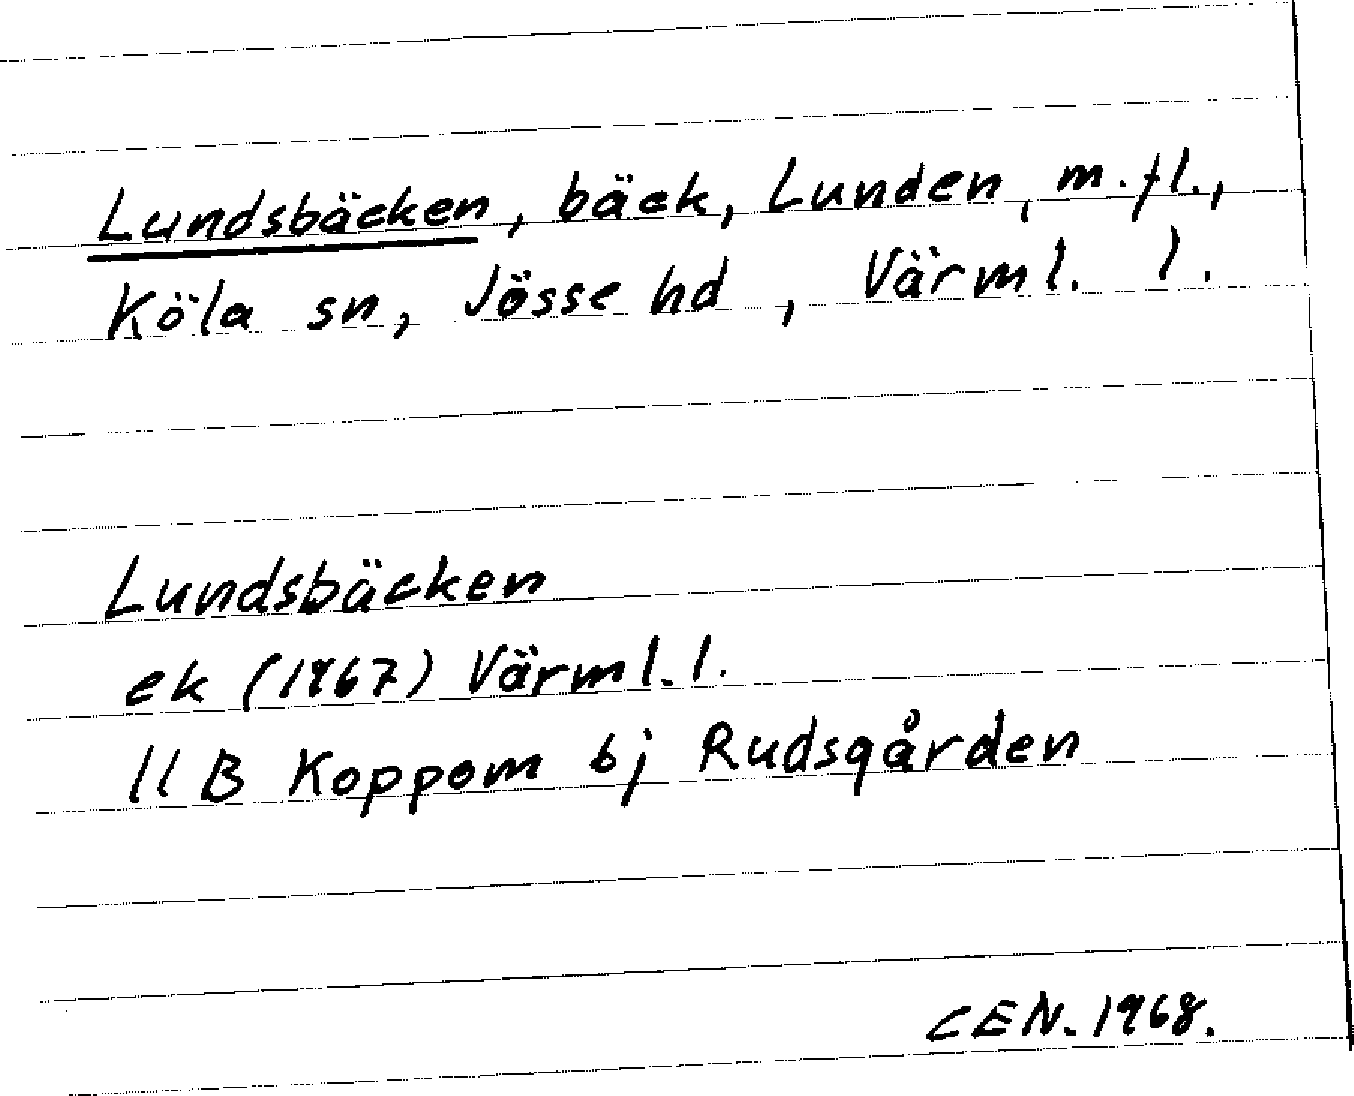 Lundsbäcken, bäck, Lunden, m.fl.,
Köla sn, Jösse hd, Värml. l.
Lundsbäcken
ek (1967) Värml. l.
11 B Koppom bj Rudsgården
CEN. 1968.